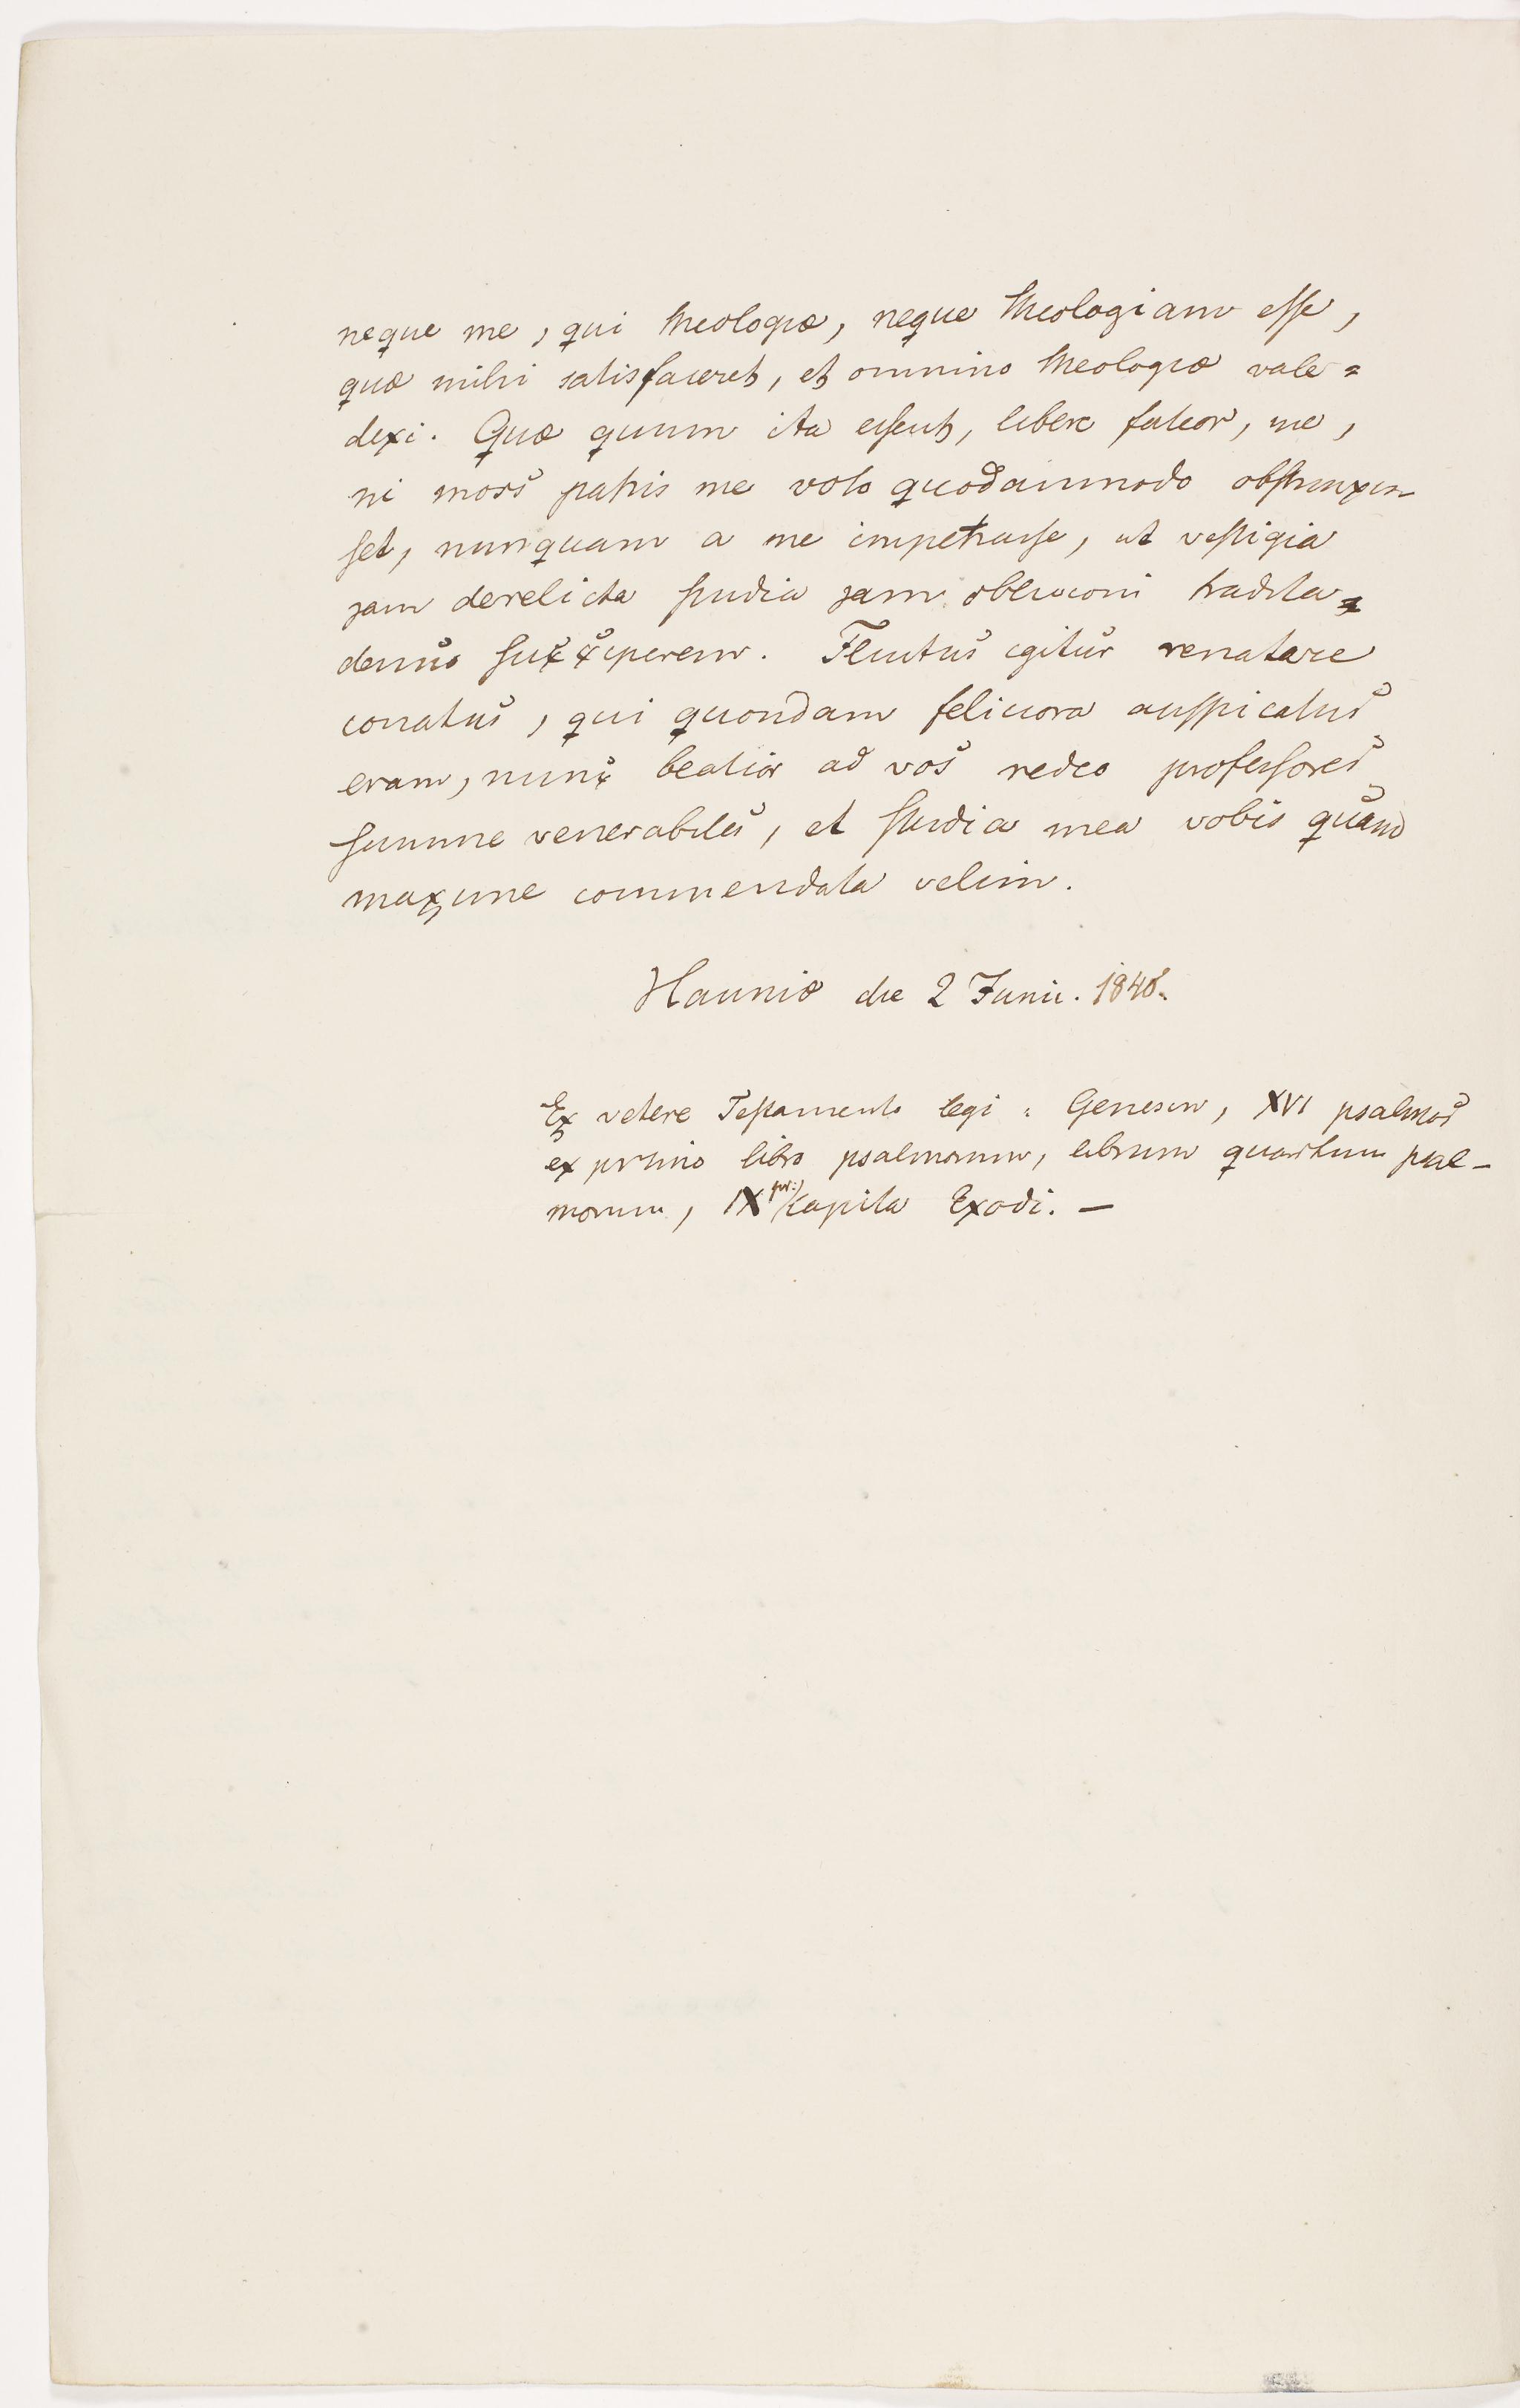 neque me, qui theologiæ, neque theologiam esse,
quæ mihi satisfaceret, et omnino theologiæ vale=
dixi. Quæ quum ita essent, libere fateor, me,
ni mors patris me voto quodammodo obstrinxis-
set, nunquam a me impetrasse, ut vestigia
jam derelicta studia jam oblivioni tradita
denuo susciperem. Fluctus igitur renatare
conatus, qui quondam feliciora auspicatus
eram, nunc beatior ad vos redeo professores
summe venerabiles, et studia mea vobis quam
maxime commendata velim.
Hauniæ die 2 Junii. 1840.
Ex vetere Testamento legi: Genesin, XVI psalmos
ex primo libro psalmorum, librum quartum psal-
morum, IX pr:) capita Exodi. —